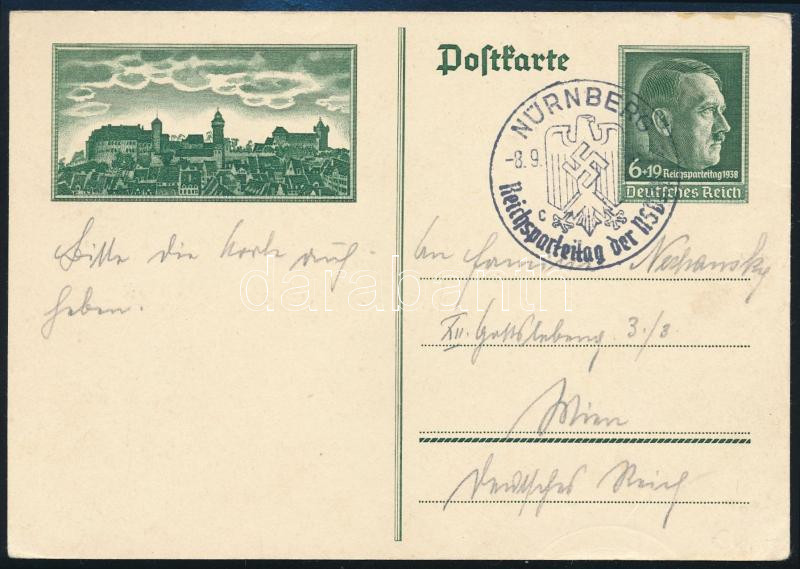 Postkarte
NÜRNBERG
-8.9.
c
Reichsparteitag der NSDAP
6+19 Reichsparteitag 1938
Deutsches Reich
Bitte die Karte auf-
heben.
An Familie Nechansky
XII. 3./3.
Wien
Deutsches Reich
darabanth